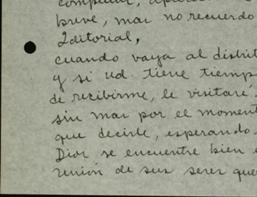 breve, mas no recuerdo
Editorial,
cuando vaya al distrit
y si ud tiene tiemp
de recibirme, le visitaré.
sin mas por el moment
que decirle, esperando
Dios se encuentre bien e
reunión de sus seres que